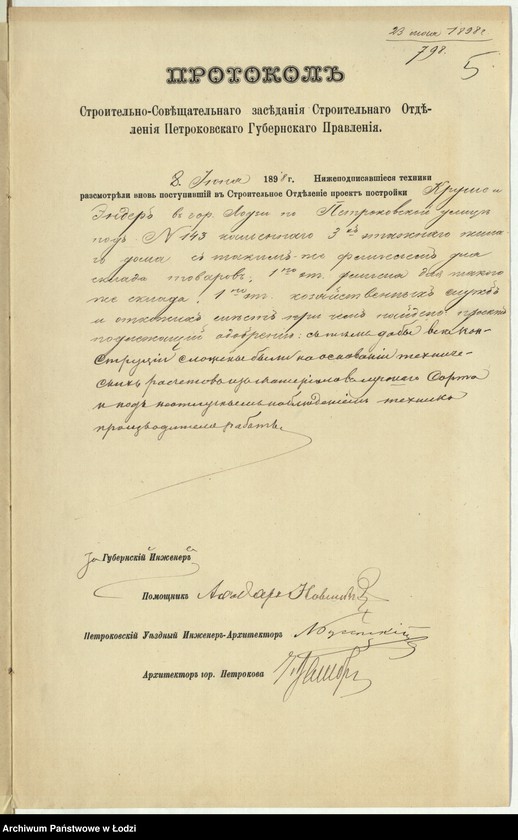 23 июня 1898 г
798.
5
ПРОТОКОЛЪ
Строительно-Совѣщательнаго засѣданія Строительнаго Отдѣ-
ленія Петроковскаго Губернскаго Правленія.
8 Іюня 1898 г. Нижеподписавшіеся техники
разсмотрѣли вновь поступившій въ Строительное Отдѣленіе проектъ постройки
Эндеръ въ гор. Лодзи по Петроковской улицѣ
подъ № 143 каменнаго 3хъ этажнаго жила-
го дома съ такимъ-же флигелемъ для
склада товаровъ, 1 эт. флигеля для такого
же склада, 1 эт. хозяйственныхъ службъ
и отхожихъ мѣстъ при чемъ найденъ проектъ
подлежащій одобренію: съ тѣмъ дабы всѣ кон-
струкціи сложены были на основаніи техниче-
скихъ расчетовъ изъ матеріаловъ лучшаго сорта
и подъ неотлучнымъ наблюденіемъ техника
производителя работъ.
За Губернскій Инженеръ
Помощникъ
Петроковскій Уѣздный Инженеръ-Архитекторъ
Архитекторъ гор. Петрокова
Archiwum Państwowe w Łodzi